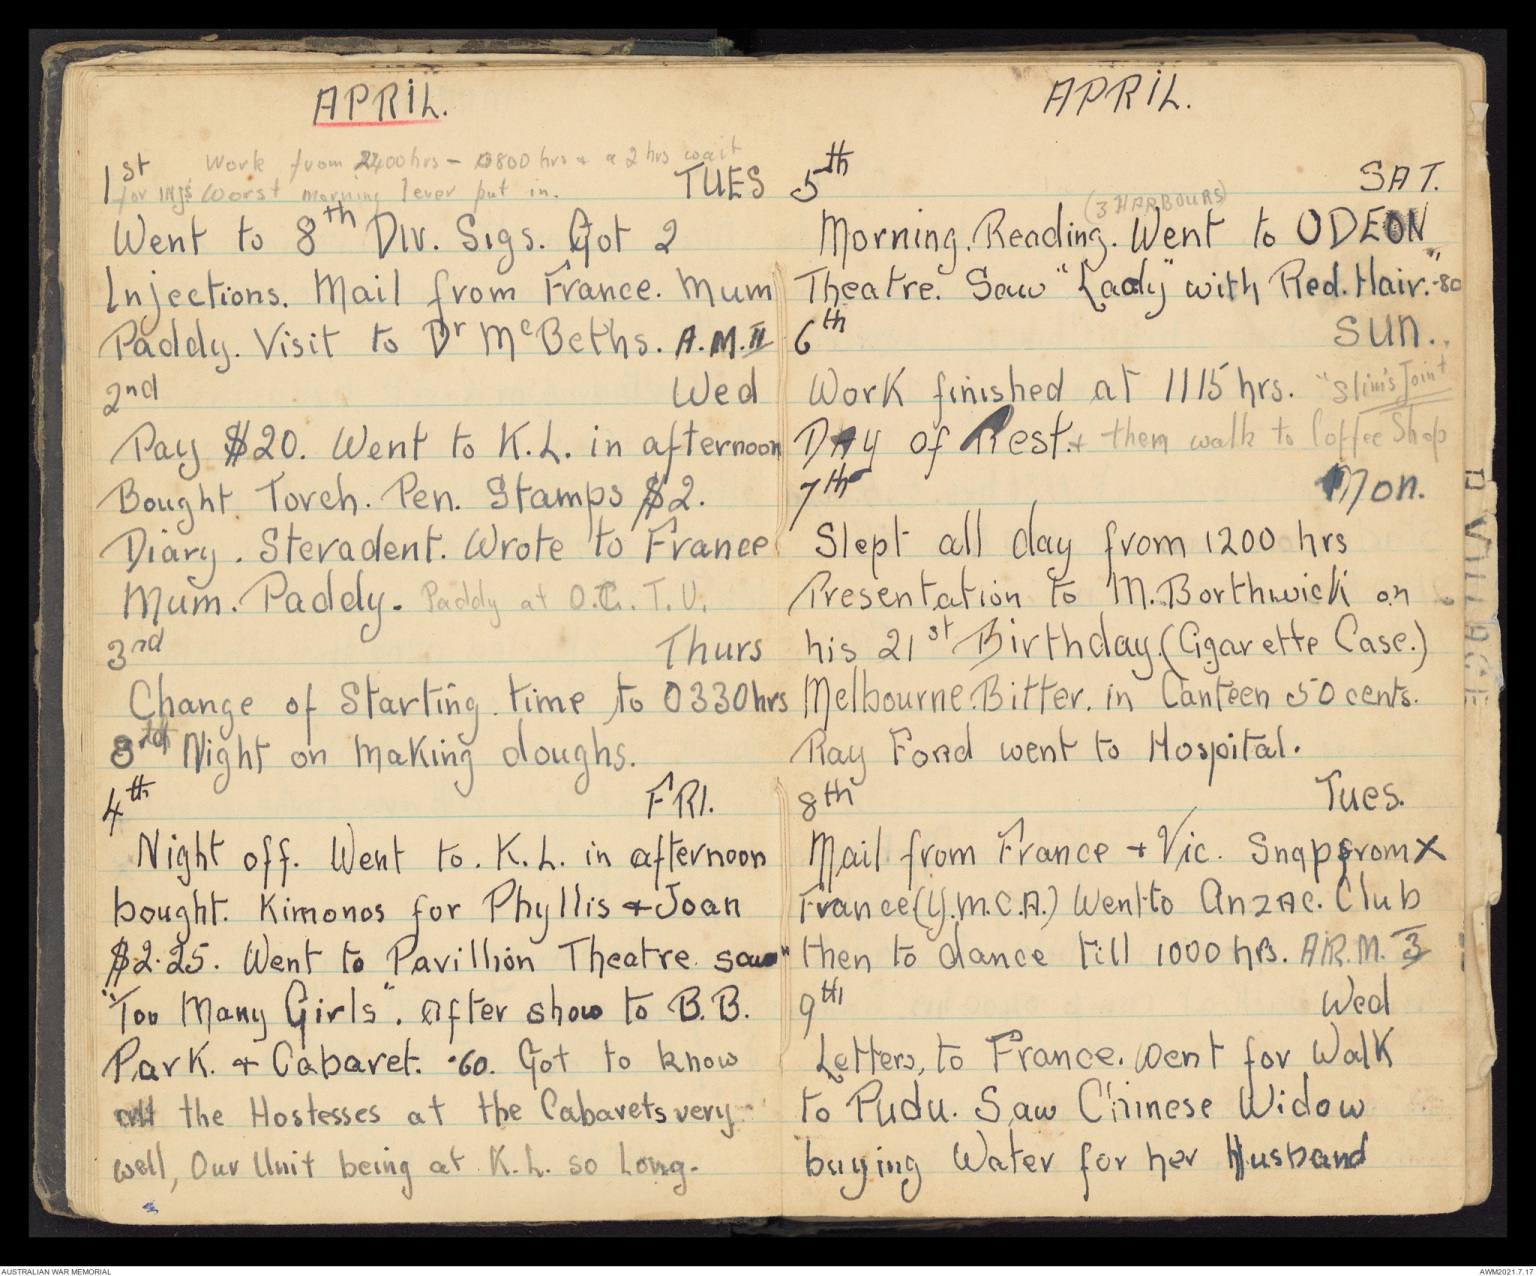 APRIL.
1st Work from 2400hrs - 0800 hrs & a 2 hrs wait
for INJs Worst morning I ever put in. TUES
Went to 8th Div. Sigs. Got 2
Injections. Mail from France. Mum
Paddy. Visit to Dr McBeths. A.M.II
2nd Wed
Pay $20. Went to K.L. in afternoon
Bought Torch. Pen. Stamps $2.
Diary. Steradent. Wrote to France
Mum. Paddy. Paddy at O.C.T.U.
3rd Thurs
Change of Starting time to 0330hrs
8th Night on making doughs.
4th FRI.
Night off. Went to. K.L. in afternoon
bought. Kimonos for Phyllis & Joan
$2.25. Went to Pavillion Theatre saw
"Too Many Girls". After show to B.B.
Park. & Cabaret. .60. Got to know
all the Hostesses at the Cabarets very
well, Our Unit being at K.L. so Long.
APRIL.
5th SAT.
(3 HARBOURS)
Morning. Reading. Went to ODEON
Theatre. Saw "Lady" with Red. Hair." .80
6th SUN..
Work finished at 1115 hrs. "Slim's Joint
DAy of Rest. & them walk to Coffee Shop
7th Mon.
Slept all day from 1200 hrs
Presentation to M. Borthwick on
his 21st Birthday. (Cigarette Case.)
Melbourne. Bitter. in Canteen 50 cents.
Ray Ford went to Hospital.
8th Tues.
Mail from France + Vic. Snap from X
France (Y.M.C.A.) Went to Anzac. Club
then to dance till 1000 hrs. A.R.M. 3
9th Wed
Letters, to France. Went for Walk
to Pudu. Saw Chinese Widow
buying Water for her Husband
D VILLAGE
AUSTRALIAN WAR MEMORIAL
AWM2021.7.17